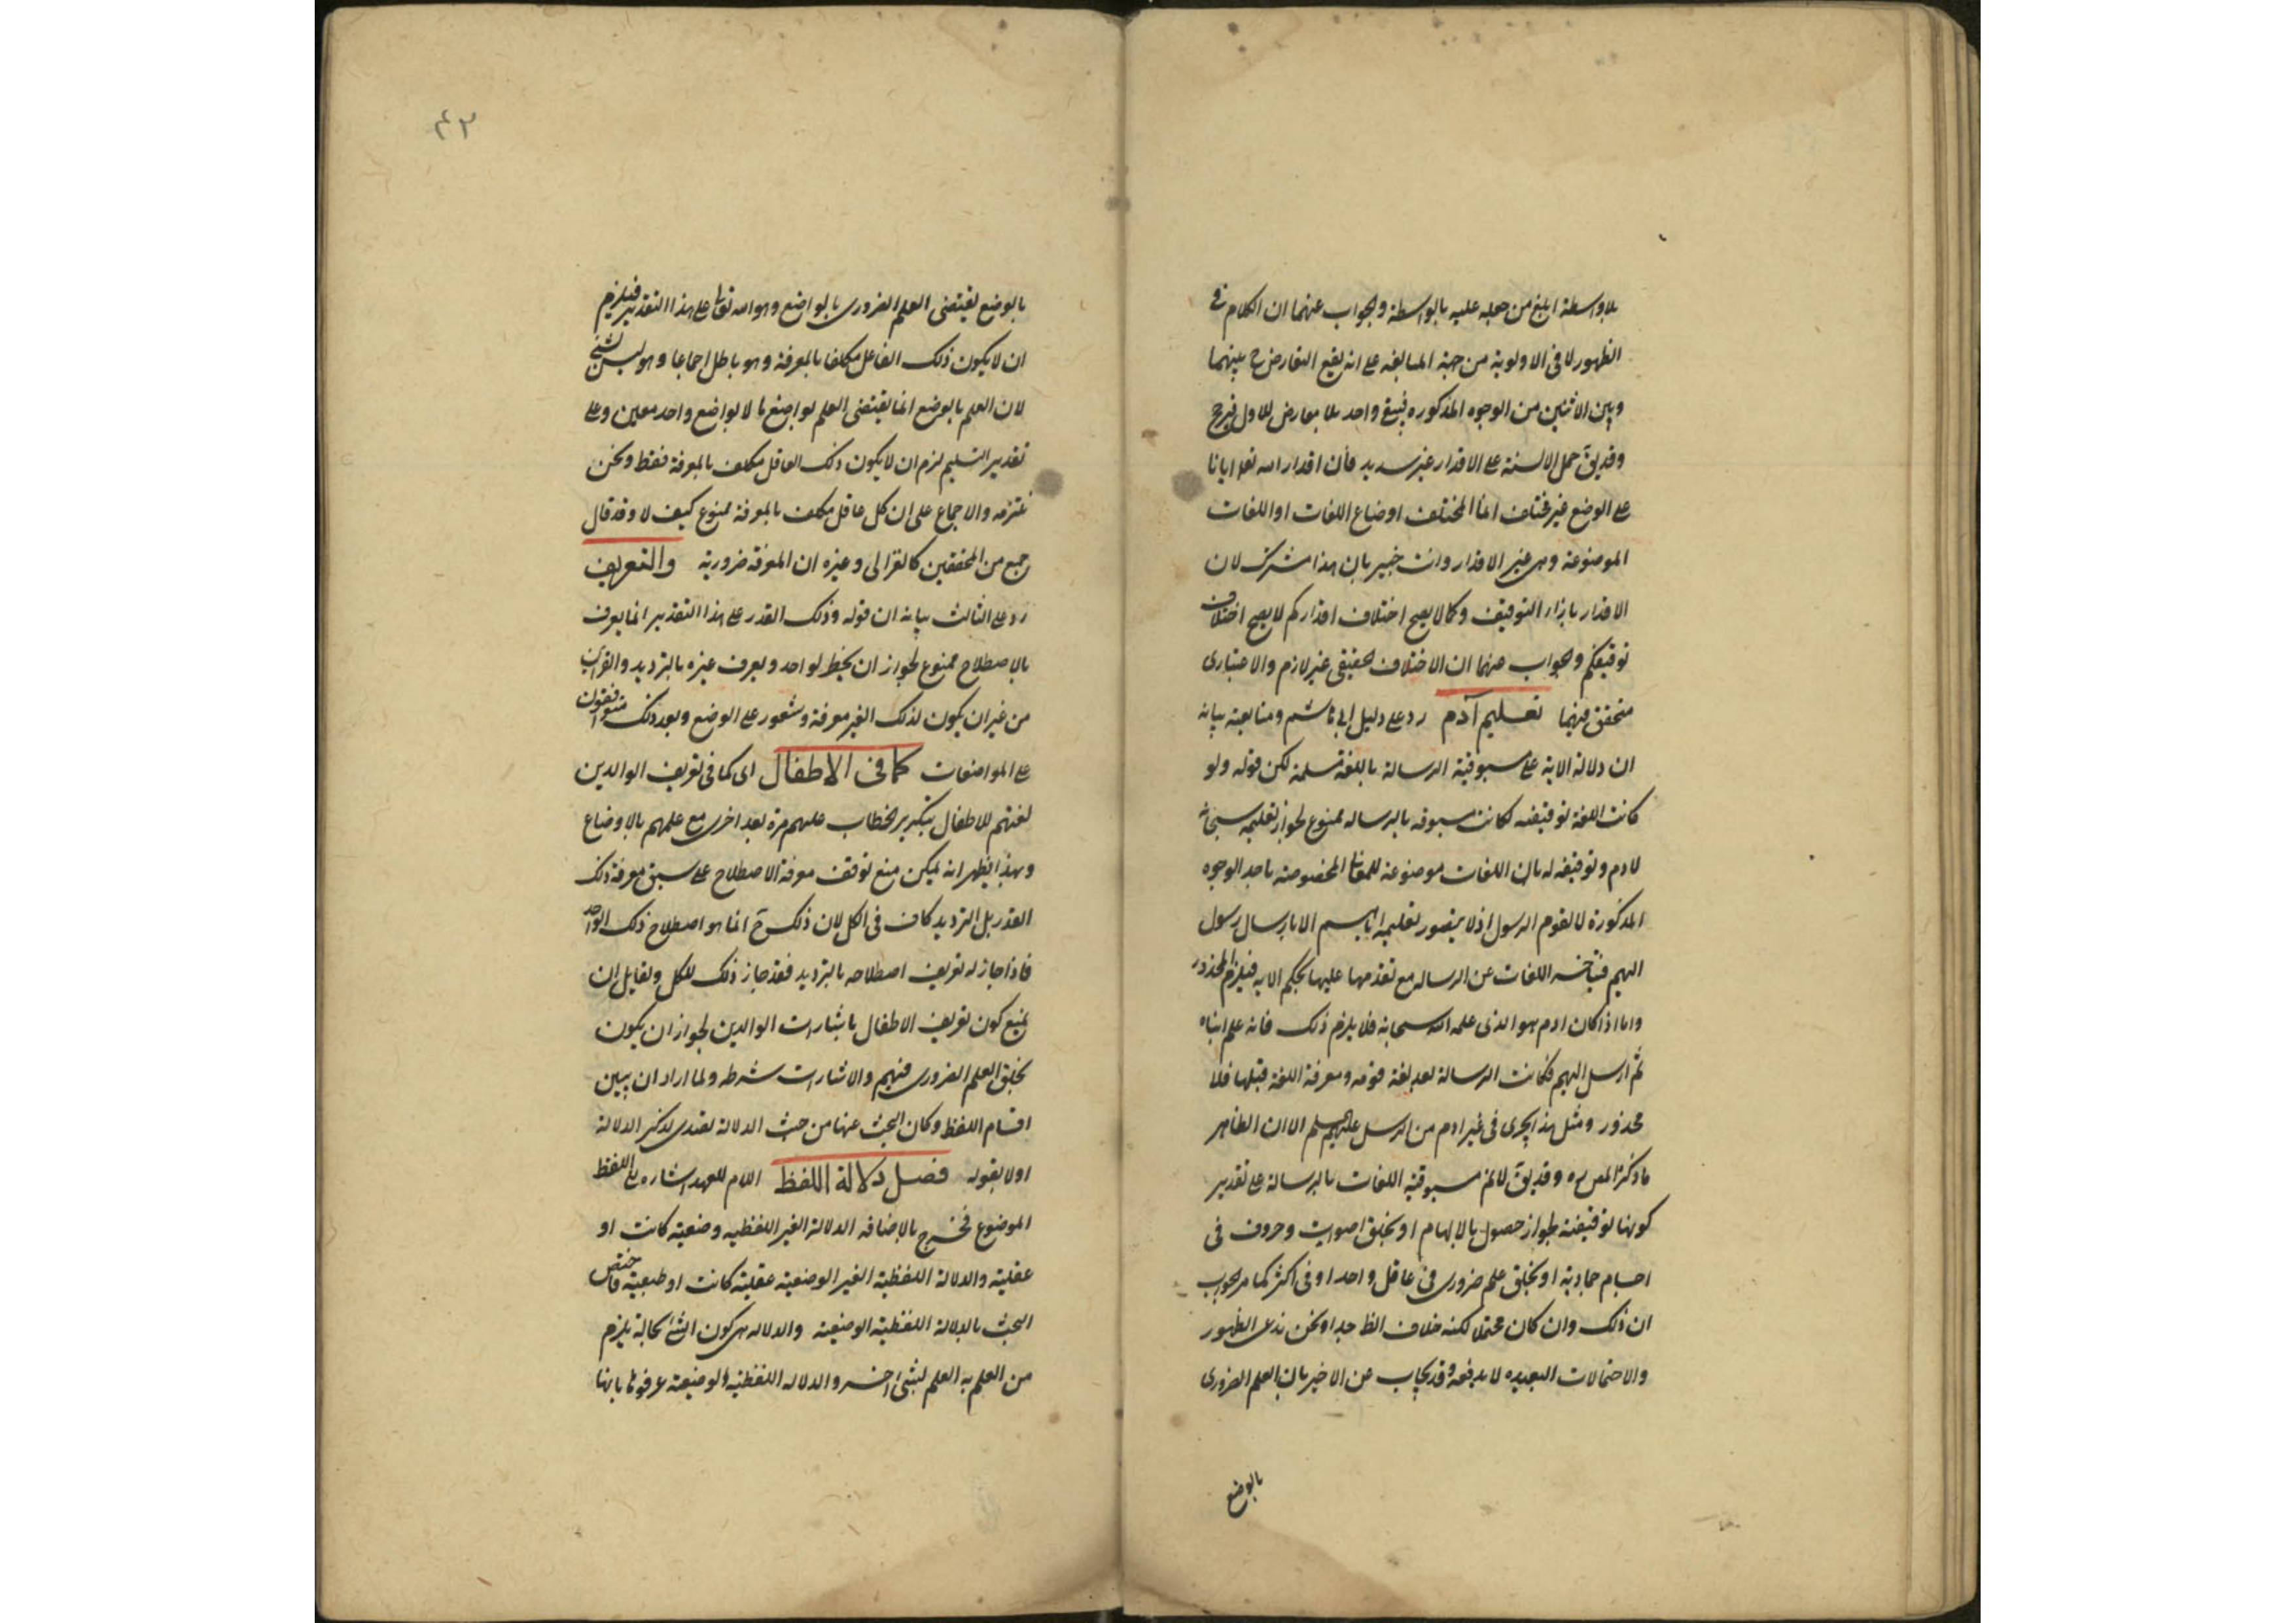 بلاواسطة ابلغ من حمله عليه بالواسطة والجواب عنهما ان الكلام فى
الظهور لا فى الاولوية من جهة المبالغه على انه يقع التعارض ح بينهما
وبين الاثنين من الوجوه المذكوره فيبقى واحد بلا معارض للاول فيرجح
وقد يق حمل الالسنة على الاقدار غير سديد فان اقدار الله تعالى ايانا
على الوضع غير مختلف انما المختلف اوضاع اللغات او اللغات
الموضوعة وهى غير الاقدار وانت خبير بان هذا مشترك لان
الاقدار بازاء التوقيف وكما لا يصح اختلاف اقداركم لا يصح اختلاف
توقيفكم والجواب عنهما ان الاختلاف الحقيقى غير لازم والاعتبارى
متحقق فيهما تعليم آدم رد على دليل ابى هاشم ومتابعيه بيانه
ان دلالة الاية على مسبوقية الرسالة باللغة مسلمة لكن قوله ولو
كانت اللغة توقيفيه لكانت مسبوقه بالرساله ممنوع لجواز تعليمه سبحانه
لادم وتوقيفه له بان اللغات موضوعة للمعانى المخصوصة باحد الوجوه
المذكورة لا لقوم الرسول اذ لا يتصور تعليمه اياهم الا بارسال رسول
اليهم فيتاخر اللغات عن الرساله مع تقدمها عليها بحكم الايه فيلزم المحذور
واما اذا كان ادم هو الذى علمه الله سبحانه فلا يلزم ذلك فانه علم ابناه
ثم ارسل اليهم فكانت الرسالة بعد لغة قومه ومعرفة اللغة قبلها فلا
محذور ومثل هذا يجرى فى غير ادم من الرسل عليهم السلم الا ان الظاهر
ما ذكره المص ره وقد يق لا نم مسبوقية اللغات بالرسالة على تقدير
كونها توقيفية لجواز حصول بالالهام او بخلق اصوات وحروف فى
اجسام جمادية او بخلق علم ضرورى فى عاقل واحد او فى اكثر كما مر الجواب
ان ذلك وان كان محتملا لكنه خلاف الظ جدا ونحن ندعى الظهور
والاحتمالات البعيده لا يدفعه وقد يجاب عن الاخير بان العلم الضرورى
بالوضع
٤٣
بالوضع يقتضى العلم الضرورى بالواضع وهو الله تعالى على هذا التقدير فيلزم
ان لا يكون ذلك الفاعل مكلفا بالمعرفة وهو باطل اجماعا وهو ليس بشئ
لان العلم بالوضع انما يقتضى العلم بواضع ما لا بواضع واحد معين وعلى
تقدير التسليم لزم ان لا يكون ذلك العاقل مكلف بالمعرفة فقط ونحن
نلتزمه والاجماع على ان كل عاقل مكلف بالمعرفة ممنوع كيف لا وقد قال
جمع من المحققين كالغزالى وغيره ان المعرفة ضرورية والتعريف
رد على الثالث بيانه ان قوله وذلك القدر على هذا التقدير انما يعرف
بالاصطلاح ممنوع لجواز ان يخطر لواحد ويعرف غيره بالترديد والقراين
من غير ان يكون لذلك الغير معرفة وشعور على الوضع وبعد ذلك متفقون
على المواضعات كما فى الاطفال اى كما فى تعريف الوالدين
لغتهم للاطفال بتكرير الخطاب عليهم مرة بعد اخرى مع علمهم بالاوضاع
وبهذا يظهر انه يمكن منع توقف معرفة الاصطلاح على سبق معرفة ذلك
القدر بل الترديد كاف فى الكل لان ذلك ح انما هو اصطلاح ذلك الواحد
فاذا جاز له تعريف اصطلاحه بالترديد فقد جاز ذلك للكل ولقايل ان
يمنع كون تعريف الاطفال باشارات الوالدين لجواز ان يكون
بخلق العلم الضرورى فيهم والاشارات شرطه ولما اراد ان يبين
اقسام اللفظ وكان البحث عنها من حيث الدلالة تصدى لذكر الدلالة
اولا بقوله فصل دلالة اللفظ اللام للعهد اشاره الى اللفظ
الموضوع فخرج بالاضافه الدلالة الغير اللفظيه وضعية كانت او
عقلية والدلالة اللفظية الغير الوضعية عقلية كانت او طبعية فاختص
البحث بالدلالة اللفظية الوضعية والدلاله هى كون الشئ بحالة يلزم
من العلم به العلم بشئ اخر والدلاله اللفظيه الوضعية عرفوها بانها